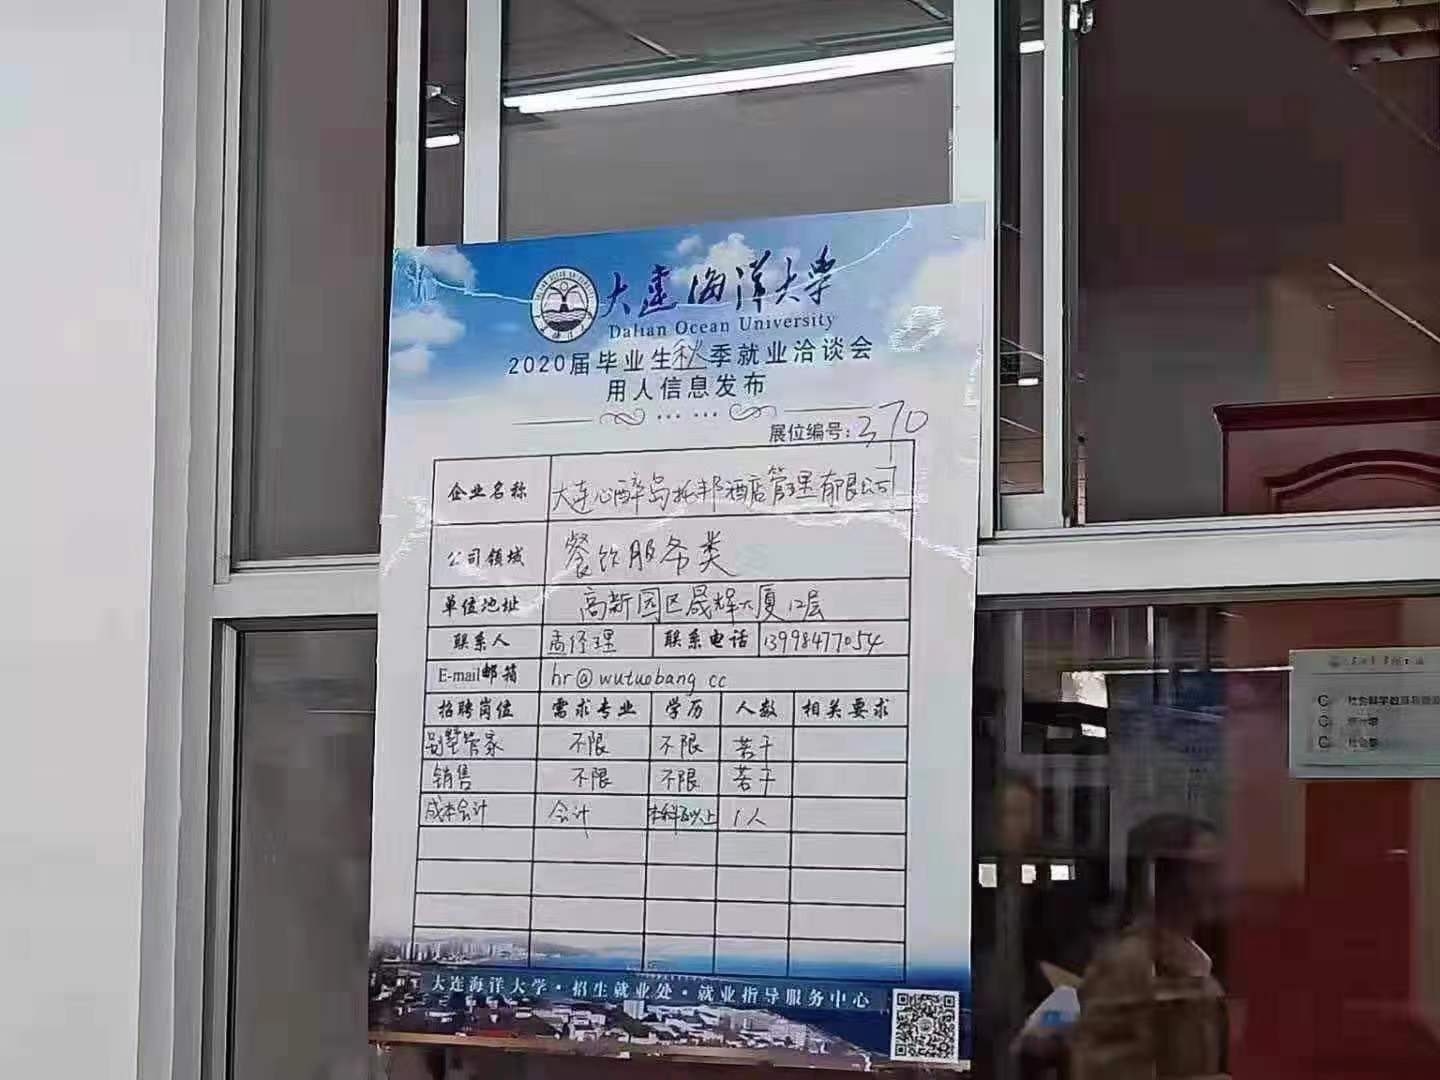 大连海洋大学
Dalian Ocean University
2020届毕业生秋季就业洽谈会
用人信息发布
展位编号:370
企业名称 大连心醉岛托邦酒店管理有限公司
公司领域 餐饮服务类
单位地址 高新园区晟辉大厦12层
联系人 孟经理 联系电话 13998477054
E-mail邮箱 hr@wutuobang.cc
招聘岗位 需求专业 学历 人数 相关要求
别墅管家 不限 不限 若干
销售 不限 不限 若干
成本会计 会计 本科及以上 1人
大连海洋大学·招生就业处·就业指导服务中心